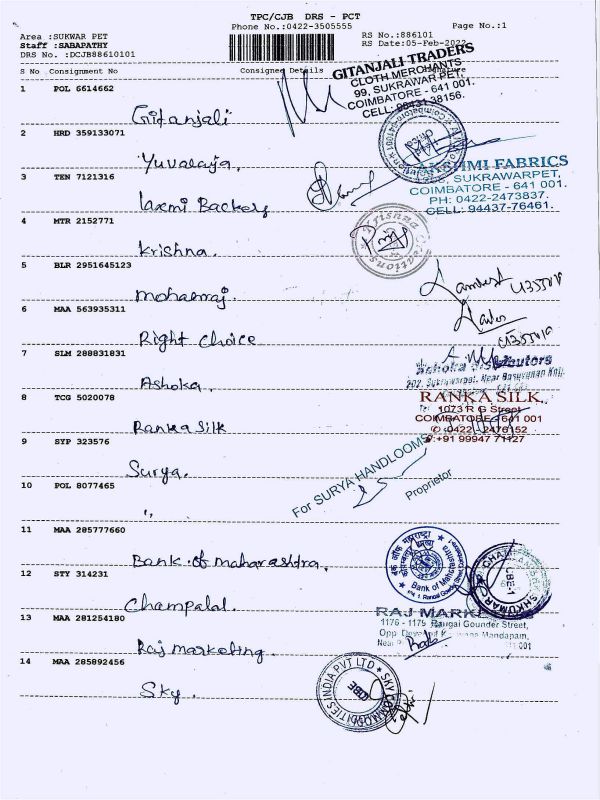 TPC/CJB DRS - PCT
Phone No.:0422-3505555
Page No.:1
Area :SUKWAR PET
Staff :SABAPATHY
DRS No. :DCJB88610101
RS No.:886101
RS Date:05-Feb-2022
S No Consignment No Consignee Details Signature
GITANJALI TRADERS
CLOTH MERCHANTS
99, SUKRAWAR PET,
COIMBATORE - 641 001.
CELL: 98431 38156.
1 POL 6614662
Gitanjali
2 HRD 359133071
Yuvalaya.
LAKSHMI FABRICS
SUKRAWARPET,
COIMBATORE - 641 001.
PH: 0422-2473837.
CELL: 94437-76461.
3 TEN 7121316
Laxmi Backery
4 MTR 2152771
Krishna.
Krishna Creations
5 BLR 2951645123
mohanraj.
6 MAA 563935311
Right choice
7 SLM 288831831
Ashoka.
Ashoka Distributors
202, Sukrawarpet, Near
8 TCG 5020078
Ranka Silk
RANKA SILK
1073 R G Street
COIMBATORE - 641 001
0422 - 2476152
+91 99947 71127
9 SYP 323576
Surya.
For SURYA HANDLOOMS
Proprietor
10 POL 8077465
"
11 MAA 285777660
Bank of maharashtra.
Bank of Maharashtra
12 STY 314231
Champalal.
CBE-1
13 MAA 281254180
Raj marketing.
RAJ MARKETING
1176 - 1175 Rangai Gounder Street,
Mandapam,
14 MAA 285892456
Sky.
SKY COMMODITIES INDIA PVT LTD
CBE